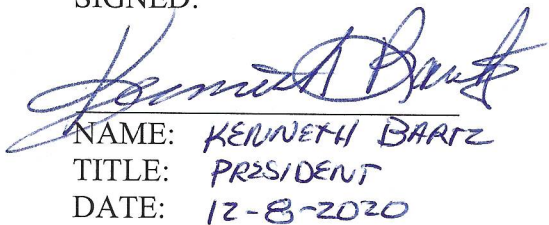 SIGNED:
Kenneth Bartz
NAME: KENNETH BARTZ
TITLE: PRESIDENT
DATE: 12-8-2020